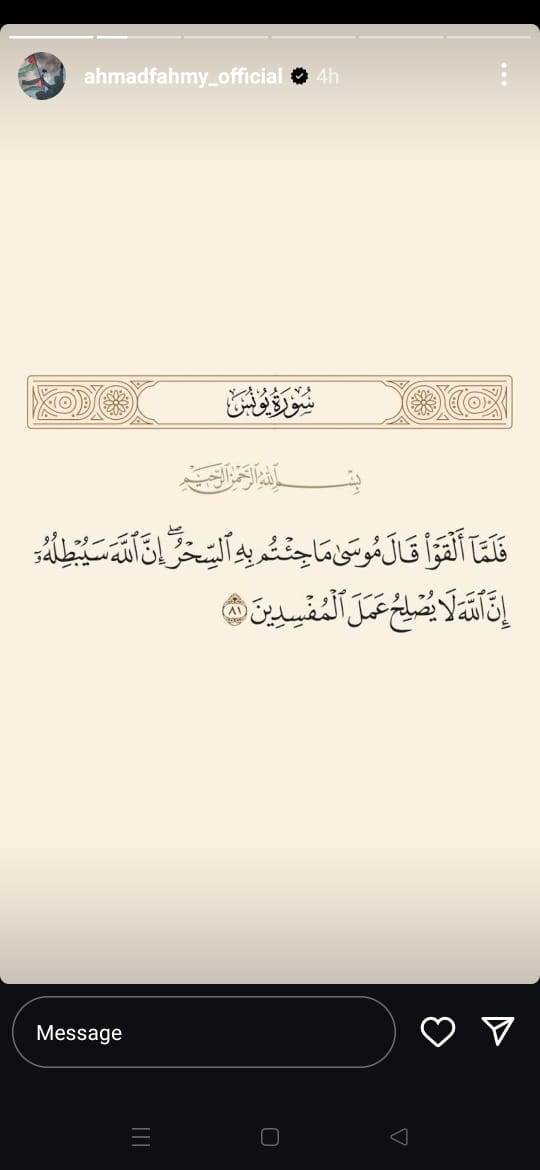 ahmadfahmy_official 4h
سُورَةُ يُونُسَ
بِسْمِ ٱللَّهِ ٱلرَّحْمَٰنِ ٱلرَّحِيمِ
فَلَمَّآ أَلْقَوْا۟ قَالَ مُوسَىٰ مَا جِئْتُم بِهِ ٱلسِّحْرُ ۖ إِنَّ ٱللَّهَ سَيُبْطِلُهُۥٓ
إِنَّ ٱللَّهَ لَا يُصْلِحُ عَمَلَ ٱلْمُفْسِدِينَ ٨١
Message